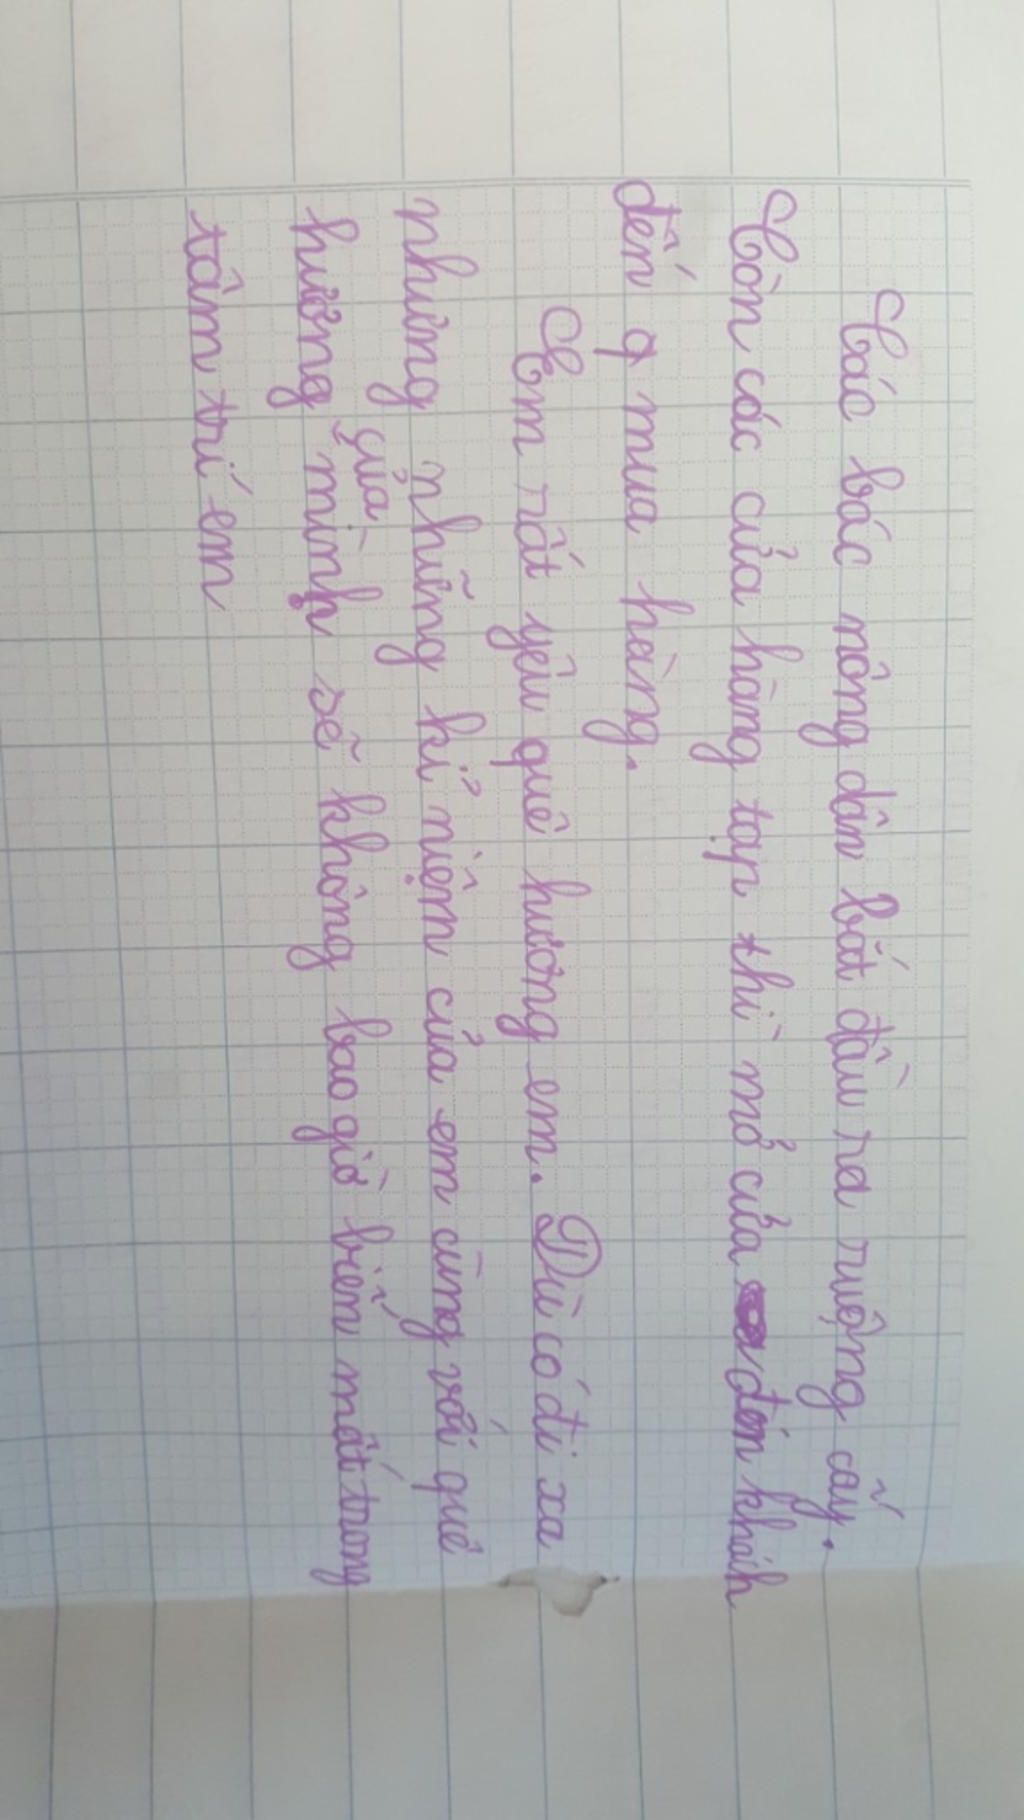 Các bác nông dân bắt đầu ra ruộng cấy.
Còn các cửa hàng tạp thì mở cửa đón khách
đến q mua hàng.
Em rất yêu quê hương em. Dù có đi xa
nhưng những kỉ niệm của em cùng với quê
của
hương mình sẽ không bao giờ biến mất trong
tâm trí em